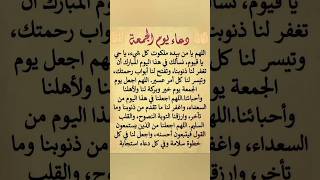 دعاء يوم الجمعة
اللهم يا من بيده ملكوت كل شيء، يا حي
يا قيوم، نسألك في هذا اليوم المبارك أن
تغفر لنا ذنوبنا، وتفتح لنا أبواب رحمتك،
وتيسر لنا كل أمر عسير. اللهم اجعل يوم
الجمعة يوم خير وبركة لنا ولأهلنا
وأحبائنا.اللهم اجعلنا في هذا اليوم من
السعداء، واغفر لنا ما تقدم من ذنوبنا وما
تأخر، وارزقنا التوبة النصوح، والقلب
السليم. اللهم اجعلنا من الذين يستمعون
القول فيتبعون أحسنه، واجعل لنا في كل
خطوة سلامة وفي كل دعاء استجابة